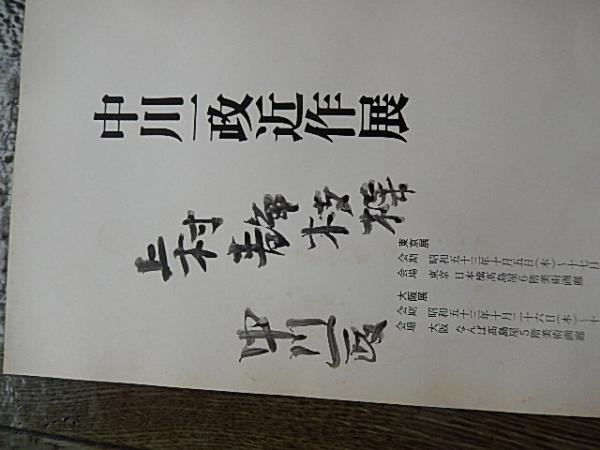 中川一政近作展
上村 様
中川一政
東京展
会期 昭和五十三年十月五日(木)〜十七日
会場 東京 日本橋高島屋6階美術画廊
大阪展
会期 昭和五十三年十月二十六日(木)〜十
会場 大阪 なんば高島屋5階美術画廊